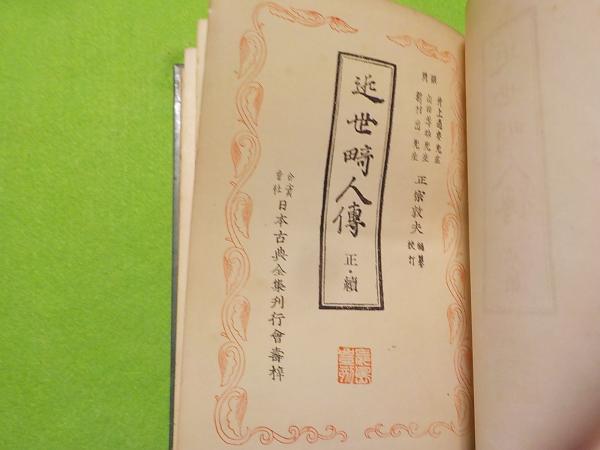 顧問
井上通泰先生
山田孝雄先生
新村出先生
正宗敦夫 編纂校訂
近世畸人傳 正・續
合資會社 日本古典全集刊行會壽梓